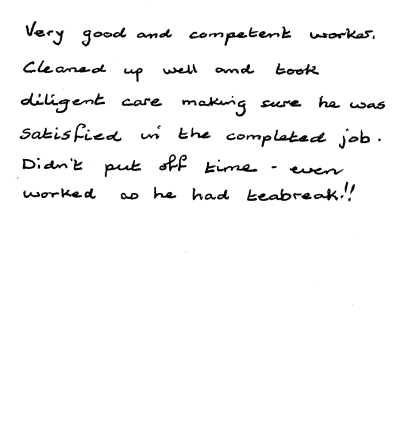 Very good and competent worker.
Cleaned up well and took
diligent care making sure he was
satisfied in the completed job.
Didn't put off time - even
worked as he had teabreak!!